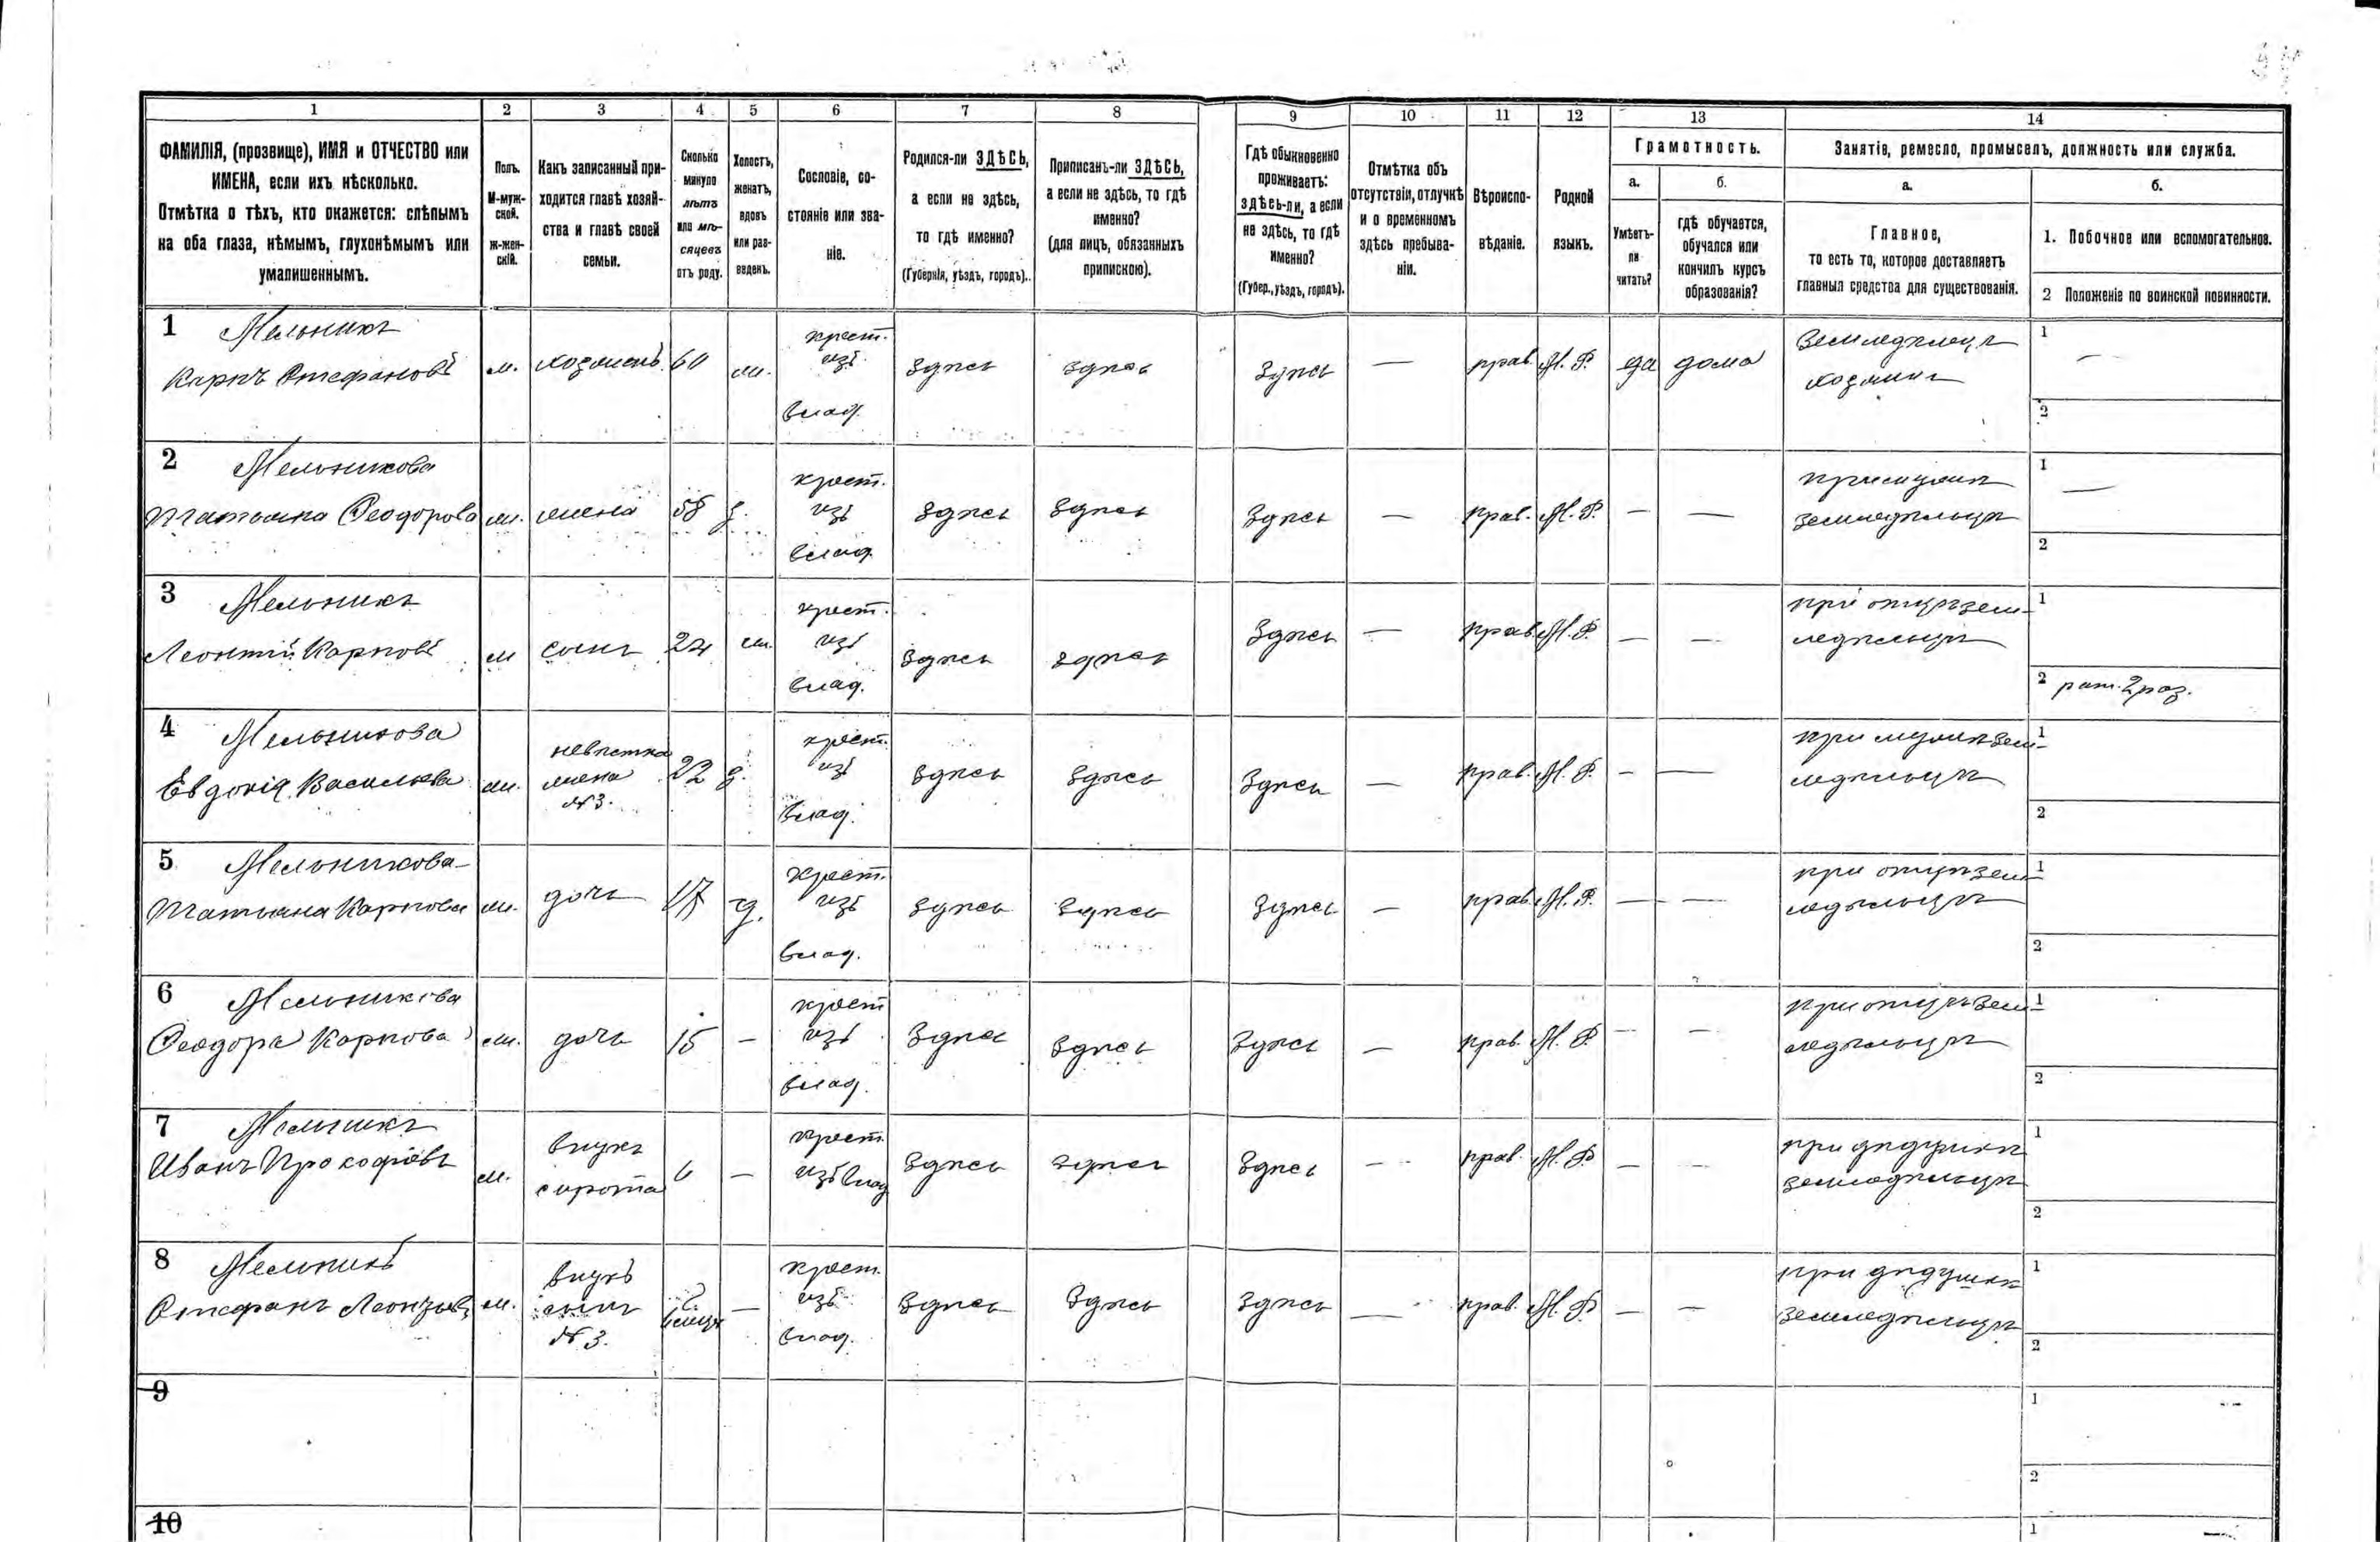 1
2
3
4
5
6
7
8
9
10
11
12
13
14
ФАМИЛІЯ, (прозвище), ИМЯ и ОТЧЕСТВО или
ИМЕНА, если ихъ нѣсколько.
Отмѣтка о тѣхъ, кто окажется: слѣпымъ
на оба глаза, нѣмымъ, глухонѣмымъ или
умалишеннымъ.
Полъ.
М-муж-
ской.
ж-жен-
скій.
Какъ записанный при-
ходится главѣ хозяй-
ства и главѣ своей
семьи.
Сколько
минуло
лѣтъ
или мѣ-
сяцевъ
отъ роду.
Холостъ,
женатъ,
вдовъ
или раз-
веденъ.
Сословіе, со-
стояніе или зва-
ніе.
Родился-ли ЗДѢСЬ,
а если не здѣсь,
то гдѣ именно?
(Губернія, уѣздъ, городъ)..
Приписанъ-ли ЗДѢСЬ,
а если не здѣсь, то гдѣ
именно?
(для лицъ, обязанныхъ
припискою).
Гдѣ обыкновенно
проживаетъ:
здѣсь-ли, а если
не здѣсь, то гдѣ
именно?
(Губер., уѣздъ, городъ).
Отмѣтка объ
отсутствіи, отлучкѣ
и о временномъ
здѣсь пребыва-
ніи.
Вѣроиспо-
вѣданіе.
Родной
языкъ.
Грамотность.
а.
Умѣетъ-
ли
читать?
б.
гдѣ обучается,
обучался или
кончилъ курсъ
образованія?
Занятіе, ремесло, промыселъ, должность или служба.
а.
Главное,
то есть то, которое доставляетъ
главныя средства для существованія.
б.
1. Побочное или вспомогательное.
2 Положеніе по воинской повинности.
1 Мельникъ
Карпъ Стефановъ
м.
хозяинъ
60
ж.
крест.
изъ
влад.
здѣсь
здѣсь
здѣсь
—
прав.
М. Р.
да
дома
Земледѣлецъ
хозяинъ
1
—
2
2 Мельникова
Татьяна Феодорова
ж.
жена
58
з.
крест.
изъ
влад.
здѣсь
здѣсь
здѣсь
—
прав.
М. Р.
—
—
при мужѣ
земледѣльцѣ
1
—
2
3 Мельникъ
Леонтій Карповъ
м
сынъ
24
ж.
крест.
изъ
влад.
здѣсь
здѣсь
здѣсь
—
прав.
М. Р.
—
—
при отцѣ зем-
ледѣльцѣ
1
2 рат. 2 раз.
4 Мельникова
Евдокія Васильева
ж.
невѣстка
жена
№ 3.
22
з.
крест.
изъ
влад.
здѣсь
здѣсь
здѣсь
—
прав.
М. Р.
—
—
при мужѣ зем-
ледѣльцѣ
1
2
5 Мельникова
Татьяна Карпова
ж.
дочь
17
д.
крест.
изъ
влад.
здѣсь
здѣсь
здѣсь
—
прав.
М. Р.
—
—
при отцѣ зем-
ледѣльцѣ
1
2
6 Мельникова
Феодора Карпова
ж.
дочь
15
—
крест
изъ
влад.
здѣсь
здѣсь
здѣсь
—
прав.
М. Р.
—
—
при отцѣ зем-
ледѣльцѣ
1
2
7 Мельникъ
Иванъ Прокофіевъ
м.
внукъ
сирота
6
—
крест.
изъ влад
здѣсь
здѣсь
здѣсь
—
прав.
М. Р.
—
—
при дѣдушкѣ
земледѣльцѣ
1
2
8 Мельникъ
Стефанъ
м.
внукъ
сынъ
№ 3.
—
крест.
изъ
влад.
здѣсь
здѣсь
здѣсь
—
прав.
М. Р.
—
—
при дѣдушкѣ
земледѣльцѣ
1
2
9
1
2
10
1